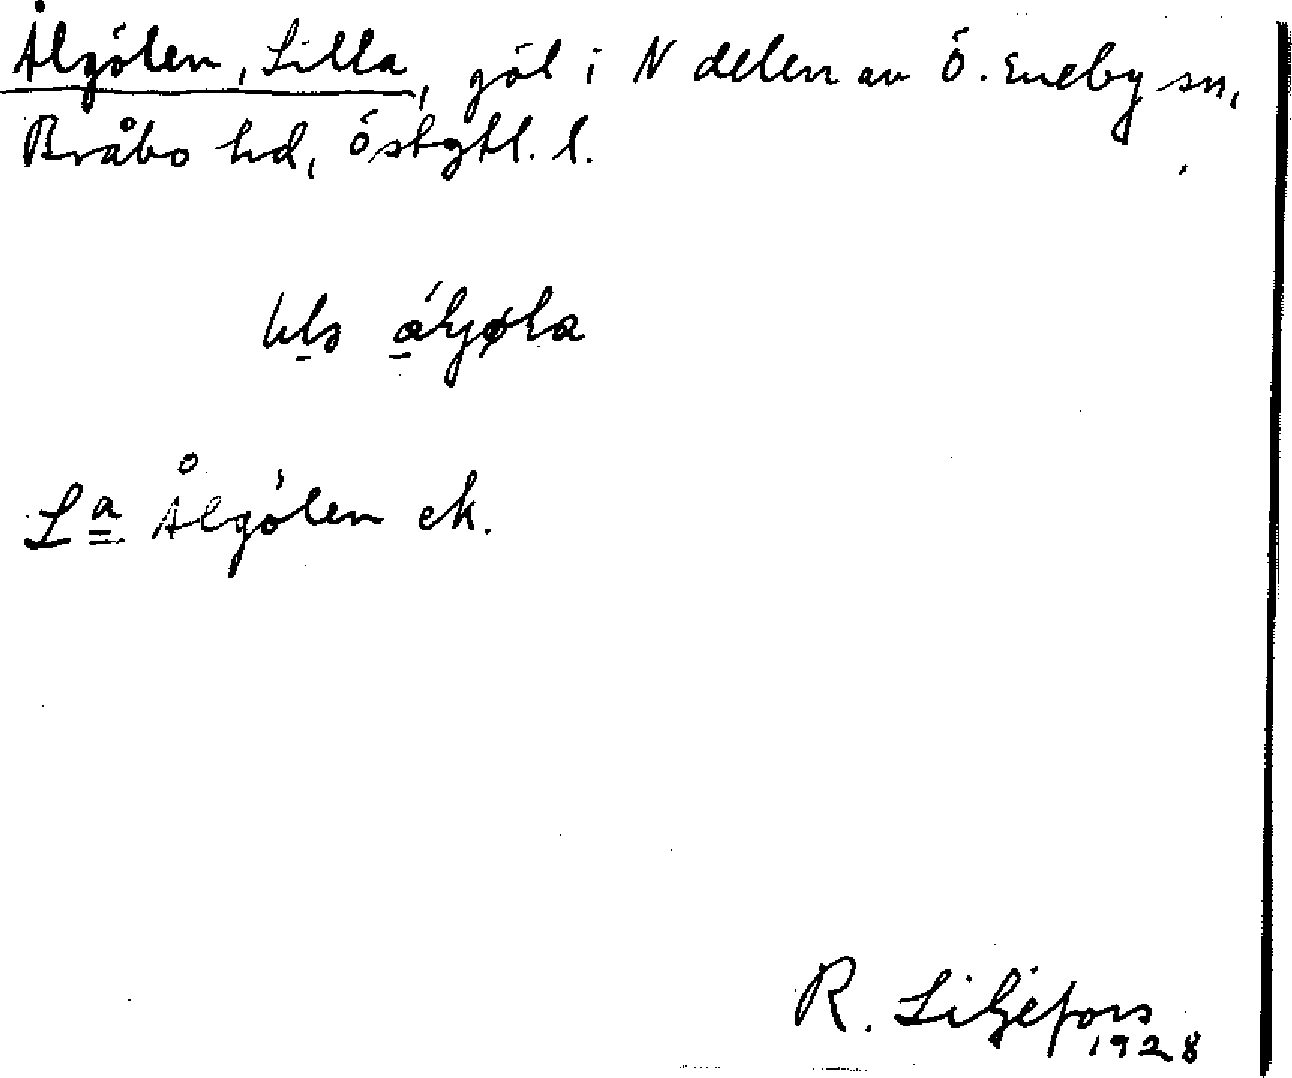 Ålgölen, Lilla, göl i N delen av Ö. Eneby sn,
Bråbo hd, Östgtl. l.
álgøla
La Ålgölen ek.
R. Liljefors
1928